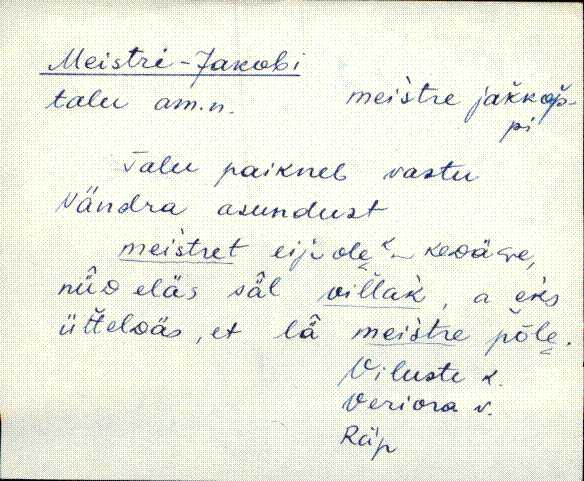 Meistri-Jakobi
talu am.n. meistre jakkop-
pi
Talu paikneb vastu
Nändra asundust
meistret eijole kedäge,
nüD eläs säl villak, a eks
ütteldäs, et lä meistre põle.
Viluste k.
Veriora v.
Räp